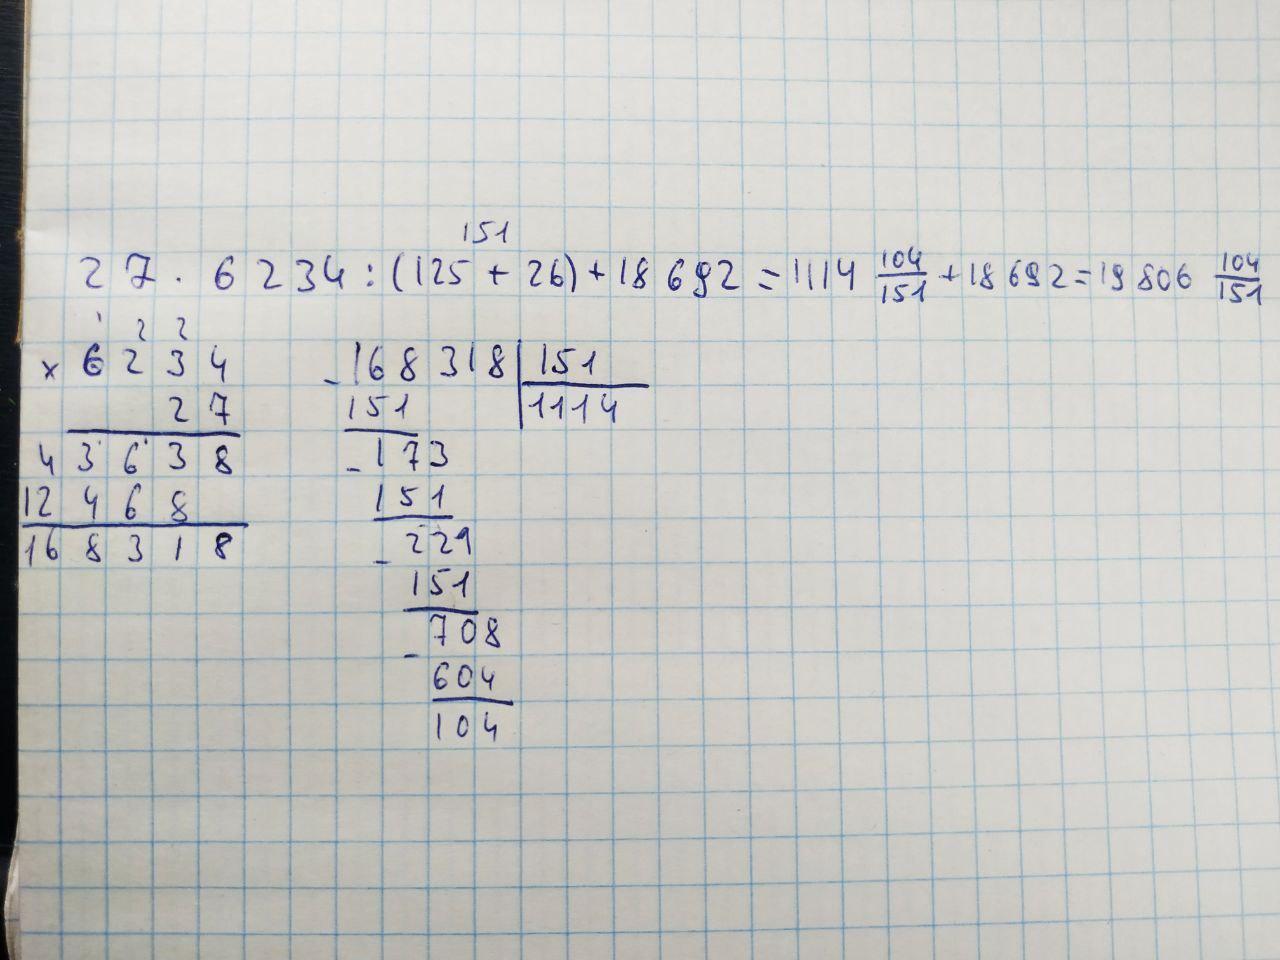 151
27 · 6234 : (125 + 26) + 18 692 = 1114 104/151 + 18 692 = 19 806 104/151
1 2 2
× 6234
27
43638
12468
168318
- 168318 | 151
151 | 1114
- 173
151
- 229
151
- 708
604
104